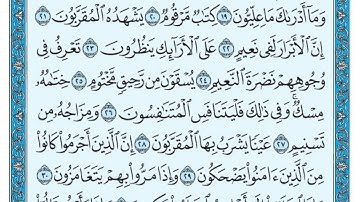 وَمَآ أَدْرَىٰكَ مَا عِلِّيُّونَ ١٩ كِتَٰبٌ مَّرْقُومٌ ٢٠ يَشْهَدُهُ ٱلْمُقَرَّبُونَ ٢١
إِنَّ ٱلْأَبْرَارَ لَفِى نَعِيمٍ ٢٢ عَلَى ٱلْأَرَآئِكِ يَنظُرُونَ ٢٣ تَعْرِفُ فِى
وُجُوهِهِمْ نَضْرَةَ ٱلنَّعِيمِ ٢٤ يُسْقَوْنَ مِن رَّحِيقٍ مَّخْتُومٍ ٢٥ خِتَٰمُهُۥ
مِسْكٌ ۚ وَفِى ذَٰلِكَ فَلْيَتَنَافَسِ ٱلْمُتَنَٰفِسُونَ ٢٦ وَمِزَاجُهُۥ مِن
تَسْنِيمٍ ٢٧ عَيْنًا يَشْرَبُ بِهَا ٱلْمُقَرَّبُونَ ٢٨ إِنَّ ٱلَّذِينَ أَجْرَمُوا۟ كَانُوا۟
مِنَ ٱلَّذِينَ ءَامَنُوا۟ يَضْحَكُونَ ٢٩ وَإِذَا مَرُّوا۟ بِهِمْ يَتَغَامَزُونَ ٣٠